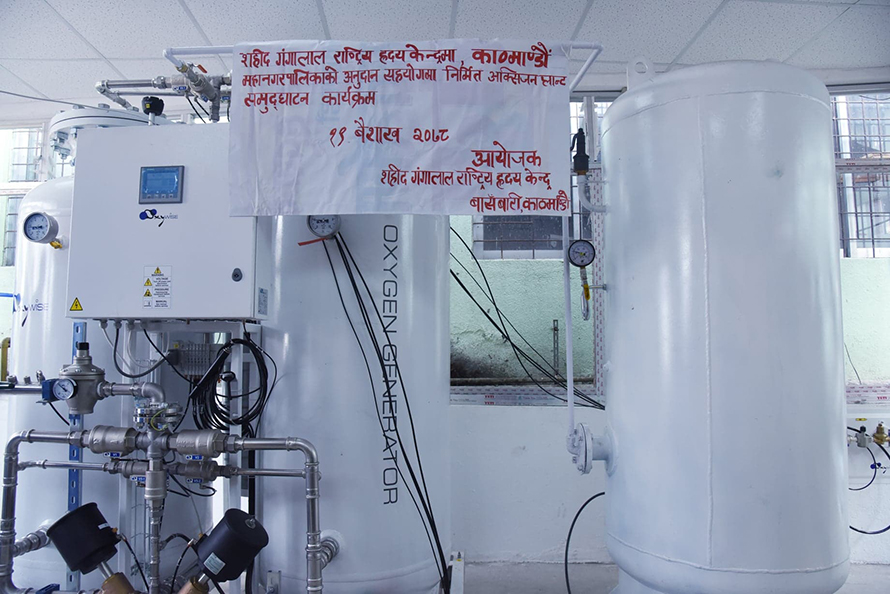 शहीद गंगालाल राष्ट्रिय ह्रदय केन्द्रमा, काठमाण्डौं
महानगरपालिकाको अनुदान सहयोगमा निर्मित अक्सिजन प्लान्ट
समुद्घाटन कार्यक्रम
१९ बैशाख २०७८
आयोजक
शहीद गंगालाल राष्ट्रिय ह्रदय केन्द्र
बाँसबारी, काठमाण्डौं
OXYWISE
OXYGEN GENERATOR